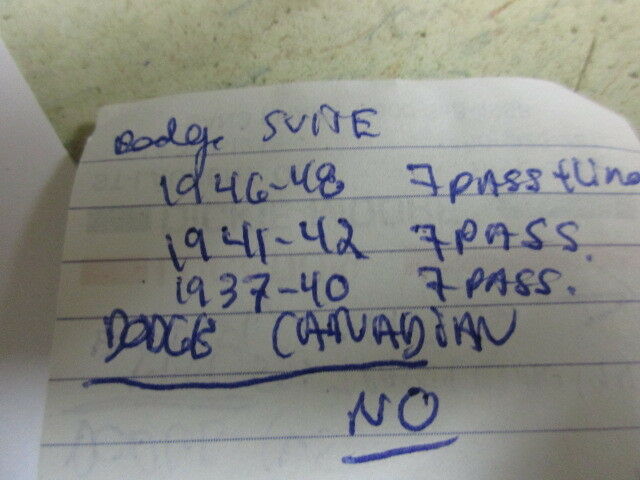 Dodge SUITE
1946-48 7 PASS & Limo
1941-42 7 PASS.
1937-40 7 PASS.
DODGE CANADIAN
NO